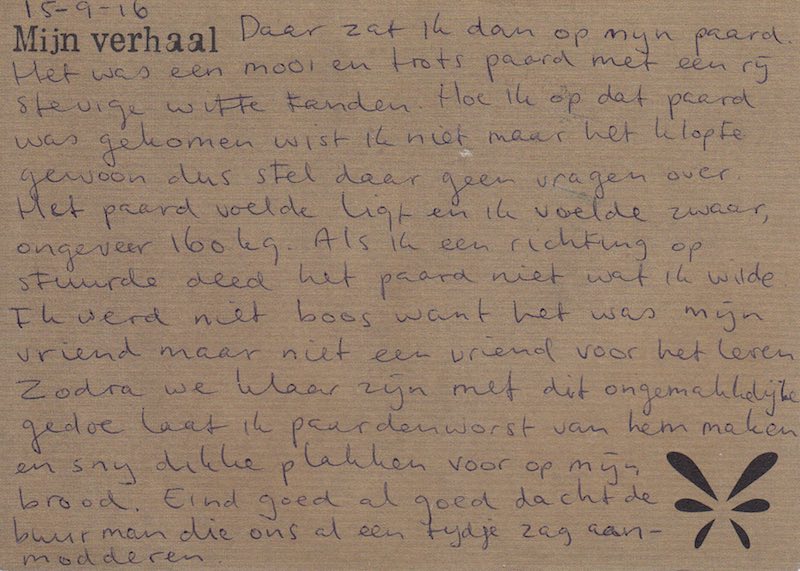 15-9-16
Mijn verhaal Daar zat ik dan op mijn paard.
Het was een mooi en trots paard met een rij
stevige witte tanden. Hoe ik op dat paard
was gekomen wist ik niet maar het klopte
gewoon dus stel daar geen vragen over.
Het paard voelde ligt en ik voelde zwaar,
ongeveer 160 kg. Als ik een richting op
stuurde deed het paard niet wat ik wilde.
Ik werd niet boos want het was mijn
vriend maar niet een vriend voor het leven
Zodra we klaar zijn met dit ongemakkelijke
gedoe laat ik paardenworst van hem maken
en snij dikke plakken voor op mijn
brood. Eind goed al goed dacht de
buurman die ons al een tijdje zag aan-
modderen.